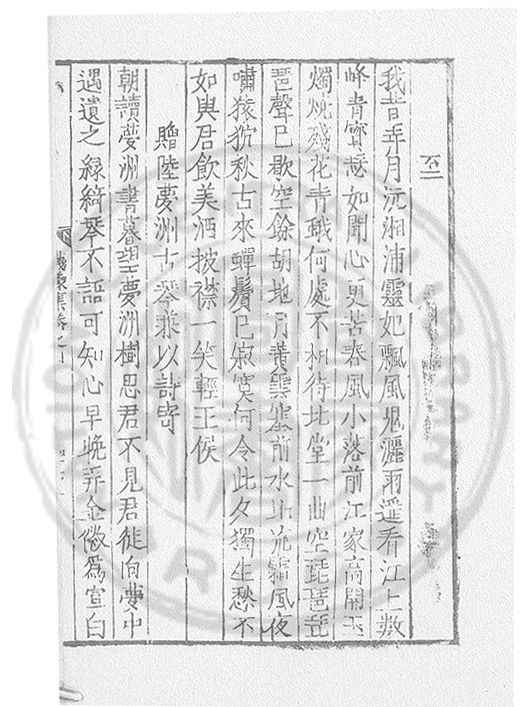 我昔弄月沅湘浦靈妃飄風鬼灑雨遥看江上數
峰青寳瑟如聞心更苦春風小落前江家高開玉
燭燒殘花青蛾何處不相待北堂一曲空琵琶琵
琶聲已歇空餘胡地月黄雲塞前水斷流霜風夜
嘯猿狖秋古來蟬鬢已寂寞何令此夕獨生愁不
如與君飲美酒披襟一笑輕王侯
贈陸夢洲古琴兼以詩寄
朝讀夢洲書暮望夢洲樹思君不見君徒向夢中
遇遺之緑綺琴不語可知心早晚弄金徽爲宣白
集卷之